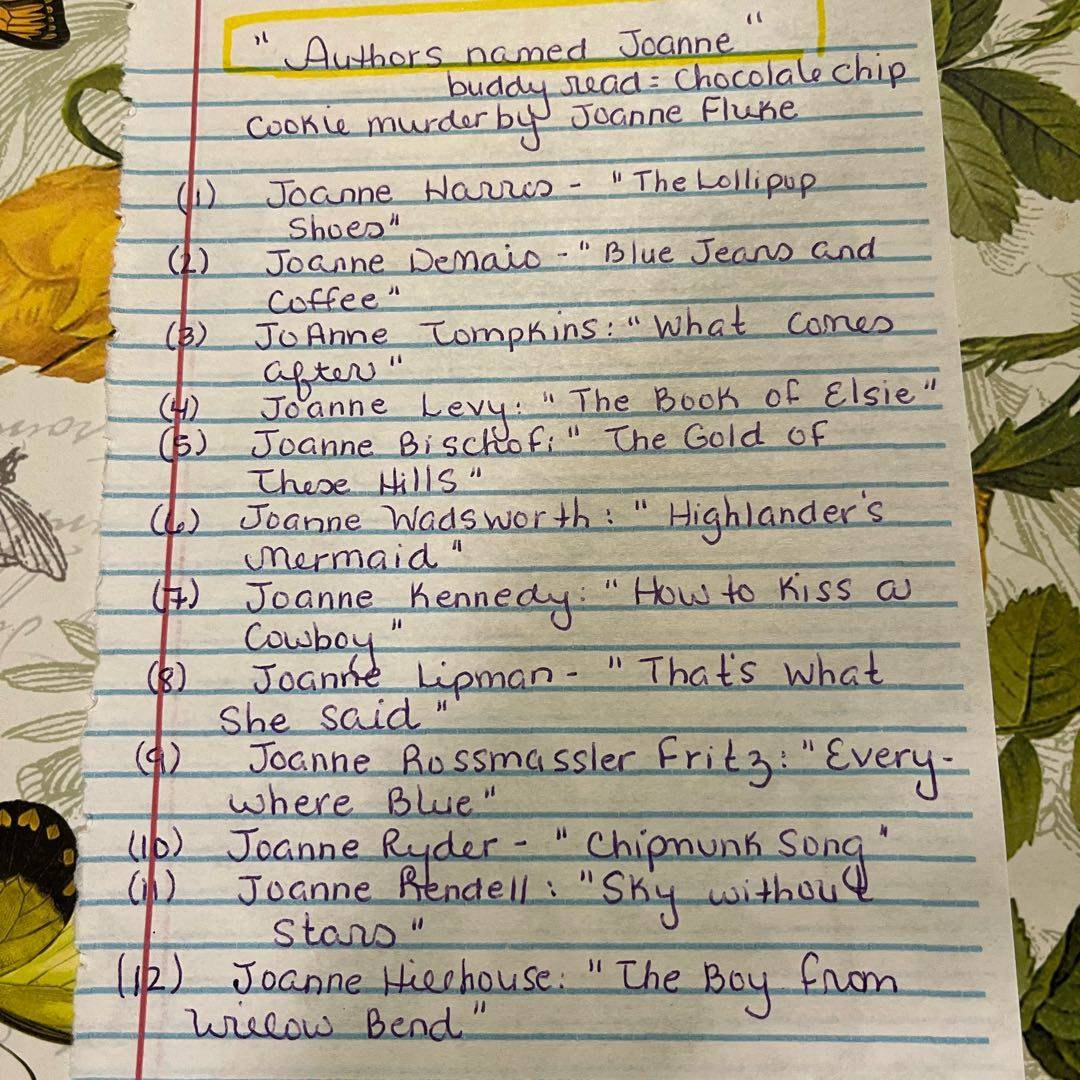 "Authors named Joanne"
buddy read = Chocolate Chip
Cookie murder by Joanne Fluke
(1) Joanne Harris - "The Lollipop
Shoes"
(2) Joanne DeMaio - "Blue Jeans and
Coffee"
(3) JoAnne Tompkins: "What comes
after"
(4) Joanne Levy: "The Book of Elsie"
(5) Joanne Bischof: "The Gold of
These Hills"
(6) Joanne Wadsworth: "Highlander's
Mermaid"
(7) Joanne Kennedy: "How to Kiss a
Cowboy"
(8) Joanne Lipman - "That's what
She said"
(9) Joanne Rossmassler Fritz: "Every-
where Blue"
(10) Joanne Ryder - "Chipmunk Song"
(11) Joanne Rendell: "Sky without
Stars"
(12) Joanne Hillhouse: "The Boy from
Willow Bend"